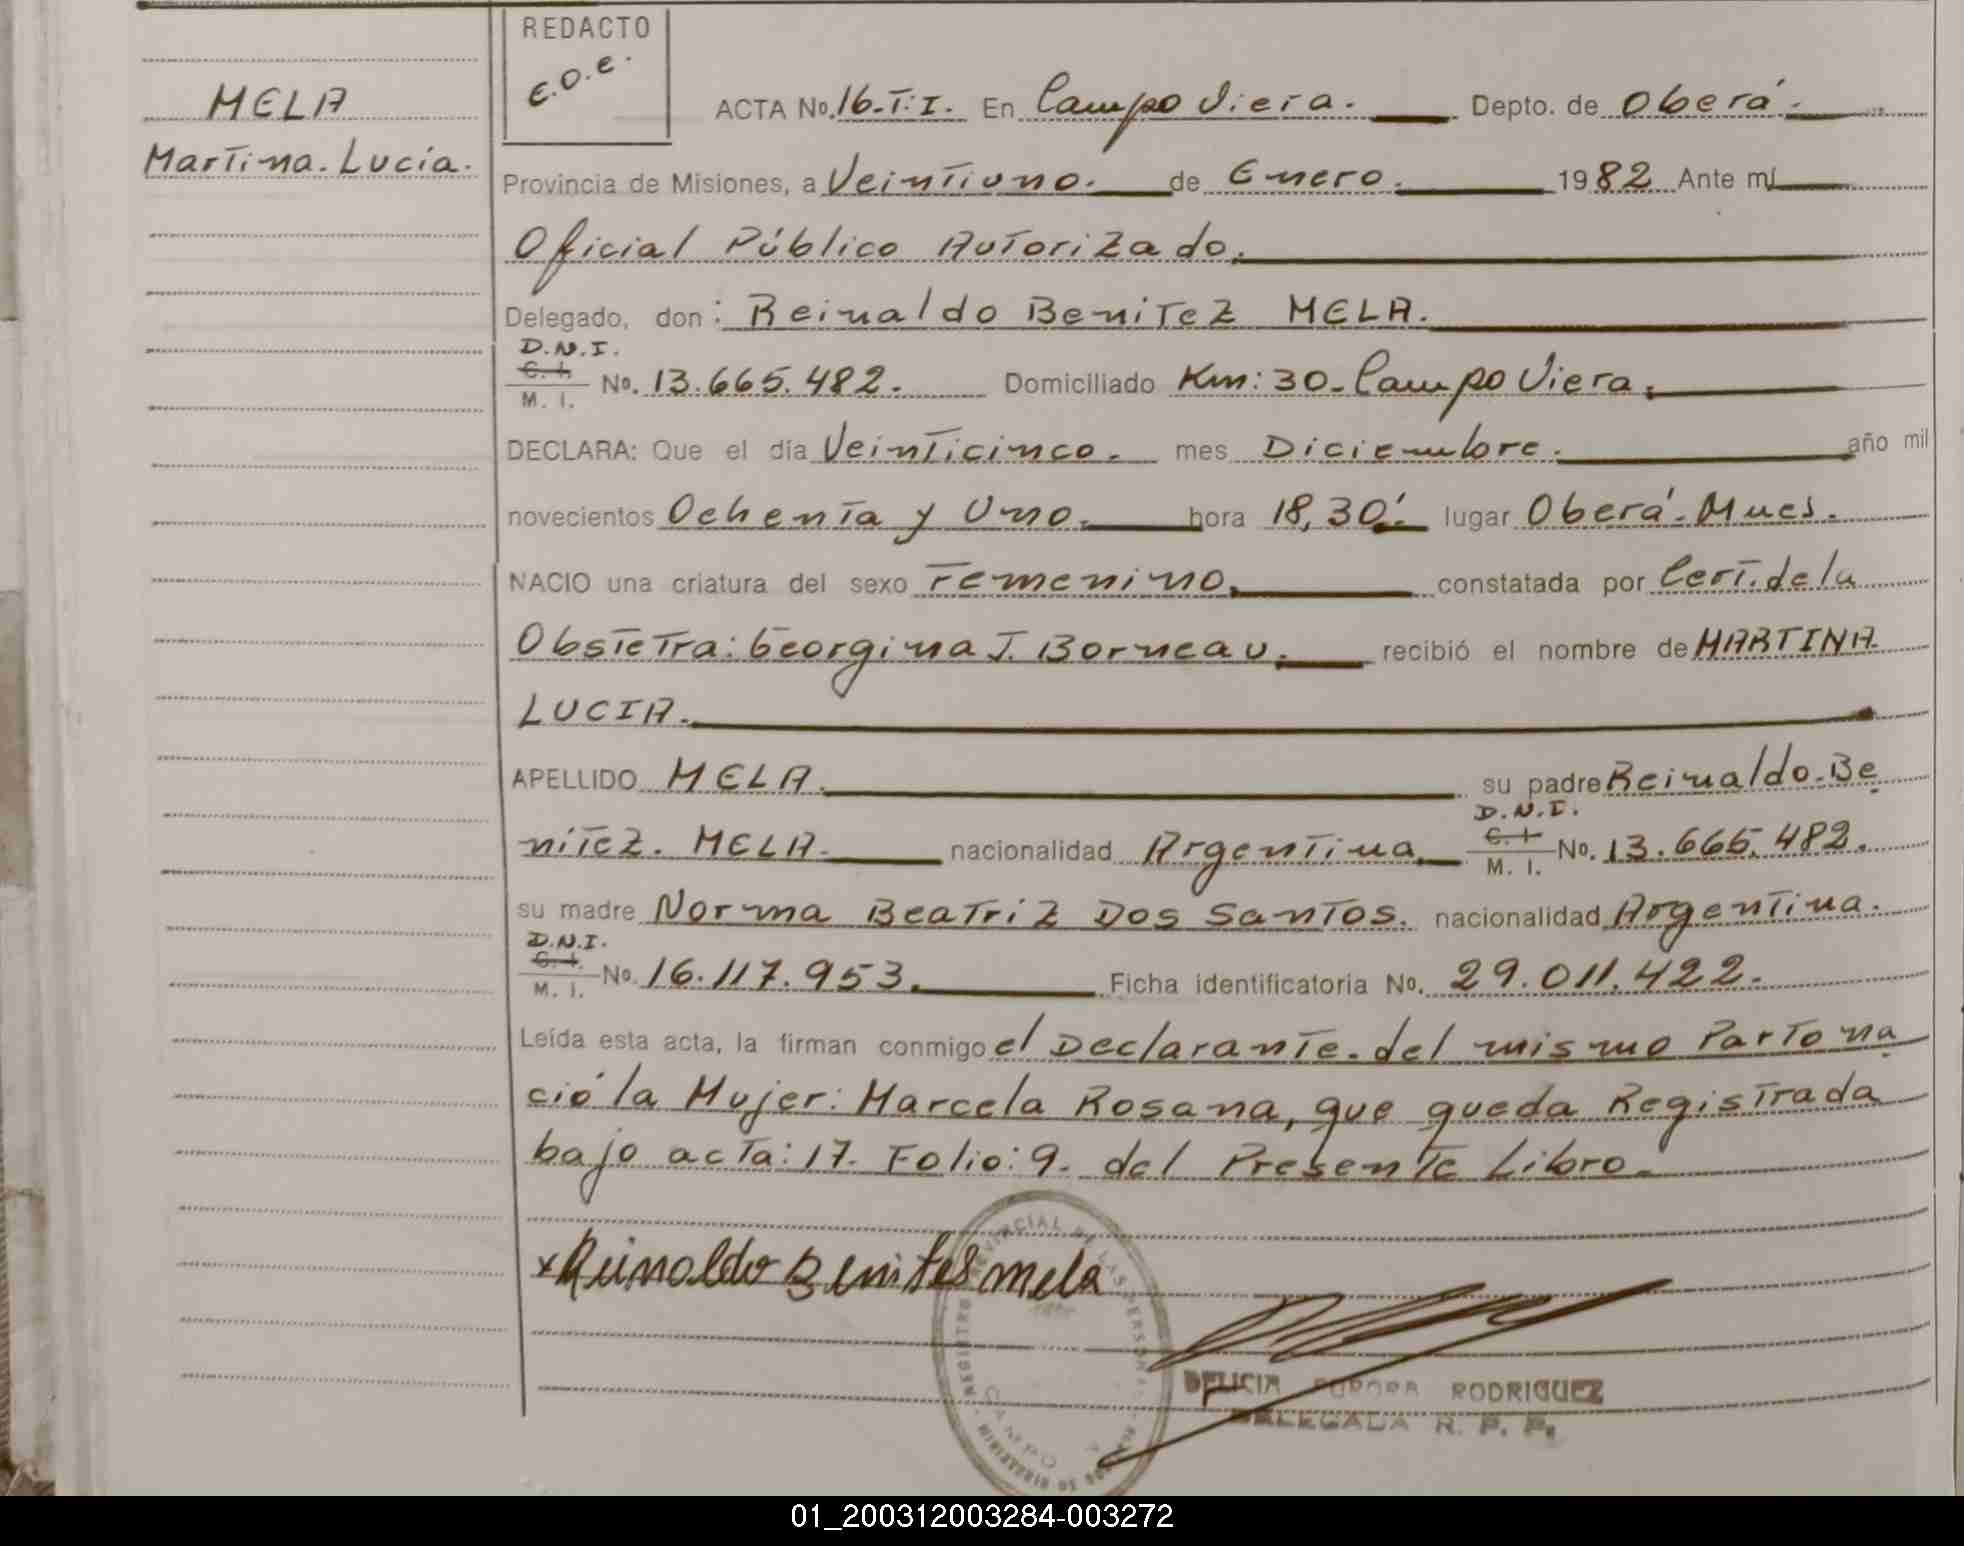 MELA
Martina. Lucía.
REDACTO
E.O.E.
ACTA No. 16.T:I. En Campo Viera. Depto. de Oberá.
Provincia de Misiones, a Veintiuno. de Enero. 1982 Ante mí
Oficial Público Autorizado.
Delegado, don: Reinaldo Benitez MELA.
D.N.I.
C. I.
M. I. No. 13.665.482. Domiciliado Km: 30-Campo Viera.
DECLARA: Que el día Veinticinco. mes Diciembre. año mil
novecientos Ochenta y Uno. hora 18,30'. lugar Oberá. Mnes.
NACIO una criatura del sexo Femenino. constatada por Cert. de la
Obstetra: Georgina J. Borneau. recibió el nombre de MARTINA
LUCIA.
APELLIDO MELA. su padre Reinaldo. Be
nitez. MELA. nacionalidad Argentina D.N.I. C. I. M. I. No. 13.665.482.
su madre Norma Beatriz Dos Santos. nacionalidad Argentina.
D.N.I.
C. I.
M. I. No. 16.117.953. Ficha identificatoria No. 29.011.422.
Leída esta acta, la firman conmigo el Declarante. del mismo Parto na
ció la Mujer: Marcela Rosana, que queda Registrada
bajo acta: 17. Folio: 9. del Presente Libro.
x Reinaldo Benites mela
REGISTRO PROVINCIAL DE LAS PERSONAS
CAMPO
DELICIA AURORA RODRIGUEZ
DELEGADA R. P. P.
01_200312003284-003272